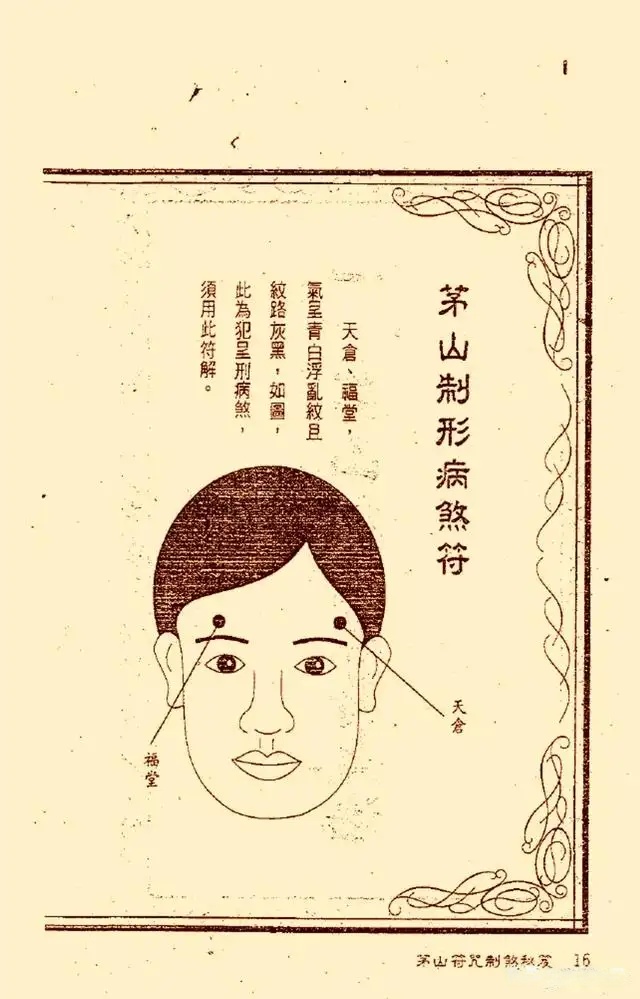 茅山制形病煞符
天倉、福堂，
氣呈青白浮亂紋且
紋路灰黑，如圖，
此為犯呈刑病煞，
須用此符解。
天倉
福堂
茅山符咒制煞秘笈 16